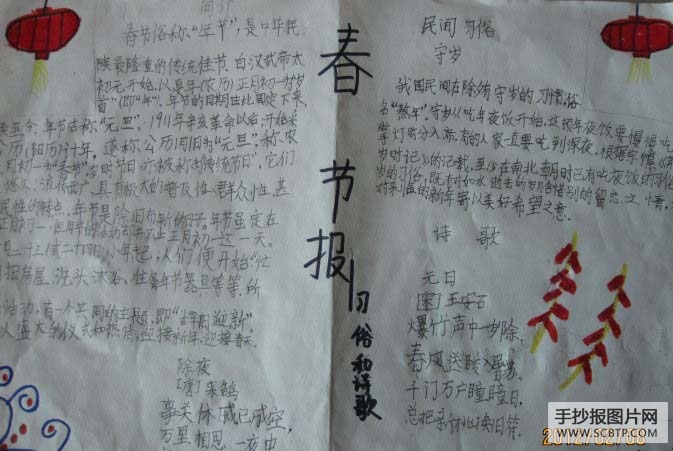 简介
春节俗称“年节”,是中华民
族最隆重的传统佳节,自汉武帝太
初元开始,以夏年(农历)正月初一为“岁
首”(即“年”),年节的日期由此固定下来,
至今,年节古称“元旦”。1911年辛亥革命以后,开始采
公历(阳历)计年,遂称公历1月1日为“元旦”,称农
月初一为“春节”。
悠久、流传面广,具有极大的普及性、群众性、甚
民性的特点。年节是除旧布新的日子。年节虽定在
正月初一,但年节的活动却不止正月初一这一天。
月二十三(或二十四日)小年起,人们便开始“忙
扫房屋、洗头沐浴、准备年节器具等等。所
活动,有一个共同的主题,即“辞旧迎新”
以盛大的仪式和热情,迎接新年,迎接春天。
除夜
[唐]来鹄
事关休戚已成空,
万里相思一夜中
春
节
报
习
俗
和
诗
歌
民间习俗
守岁
我国民间在除夕有守岁的习惯,俗
名“熬年”。守岁从吃年夜饭开始,这顿年夜饭要慢慢吃,
掌灯时分入席,有的人家一直要吃到深夜。根据宗懔《荆
岁时记》的记载,至少在南北朝时已有吃年夜饭的习俗
岁的习俗,既有对如水逝去的岁月含惜别留恋之情,
对来临的新年寄以美好希望之意。
诗歌
元日
[宋]王安石
爆竹声中一岁除,
春风送暖入屠苏。
千门万户曈曈日,
总把新桃换旧符。
手抄报图片网
WWW.SCBTP.COM